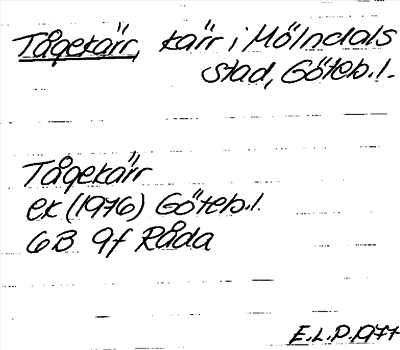 Tågekärr, kärr i Mölndals
stad, Göteb.l.
Tågekärr
ek (1976) Göteb.l.
6B 9f Råda
E.L.P. 1977